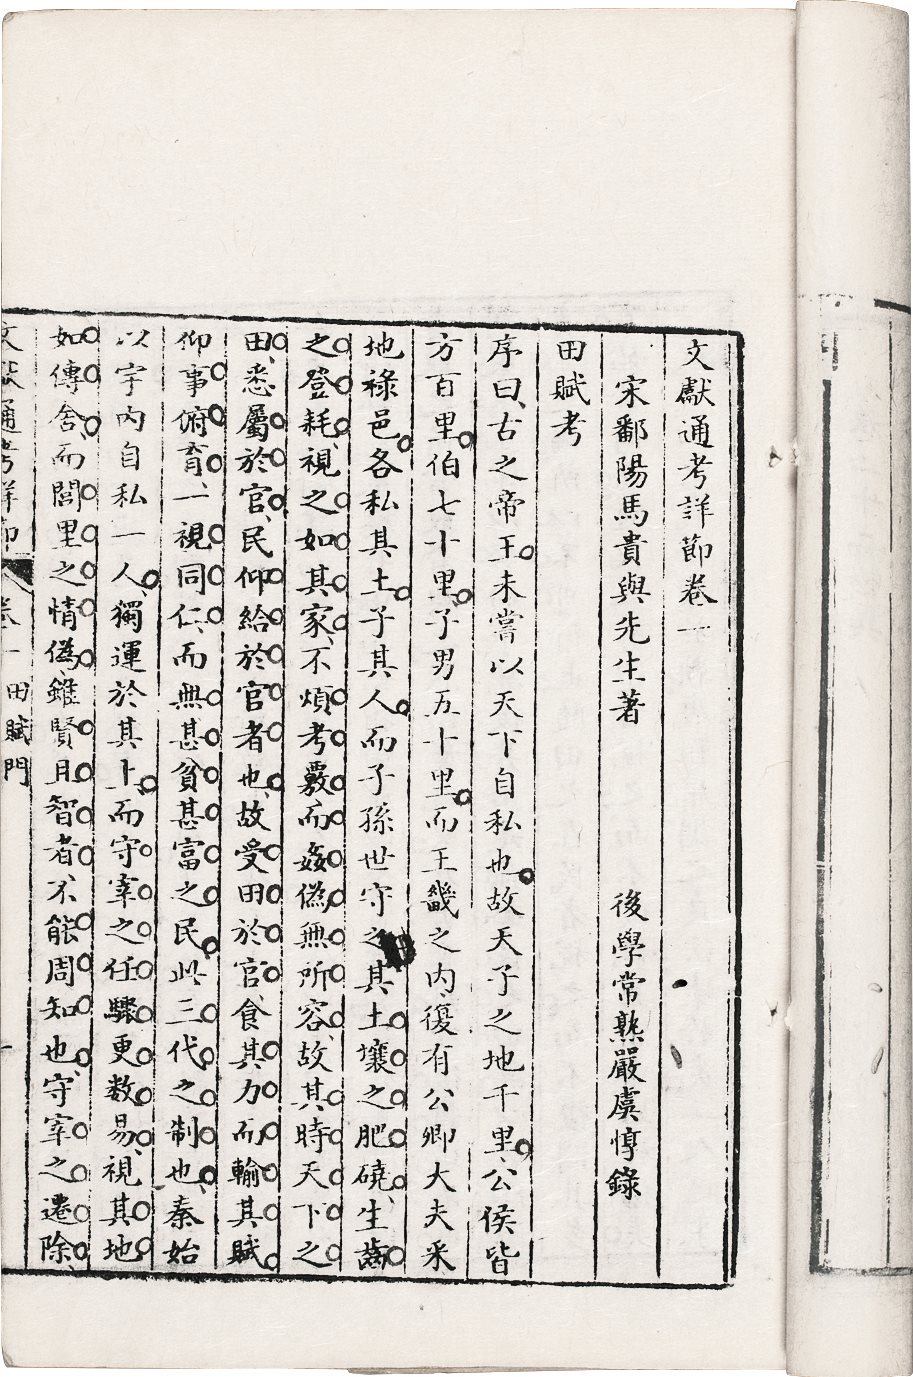 文獻通考詳節卷一
宋鄱陽馬貴與先生著 後學常熟嚴虞惇錄
田賦考
序曰古之帝王未嘗以天下自私也故天子之地千里公侯皆
方百里伯七十里子男五十里而王畿之内復有公卿大夫采
地祿邑各私其土子其人而子孫世守之其土壤之肥磽生齒
之登耗視之如其家不煩考覈而姦偽無所容故其時天下之
田悉屬於官民仰給於官者也故受田於官食其力而輸其賦
仰事俯育一視同仁而無甚貧甚富之民此三代之制也秦始
以宇内自私一人獨運於其上而守宰之任驟更数易視其地
如傳舍而閭里之情偽雖賢且智者不能周知也守宰之遷除
文獻通考詳節 卷一 田賦門